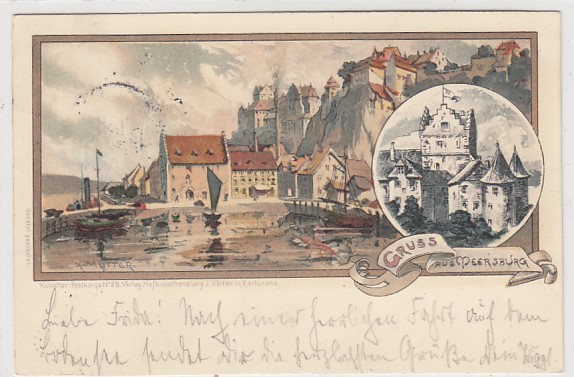 K. MUTTER.
GRUSS
AUS MEERSBURG
Künstler-Postkarte No 28. Verlag Hofkunsthandlung J. Velten in Karlsruhe.
Liebe Frida! Nach einer herrlichen Fahrt auf dem
Bodensee sendet Dir die herzlichsten Grüße Dein